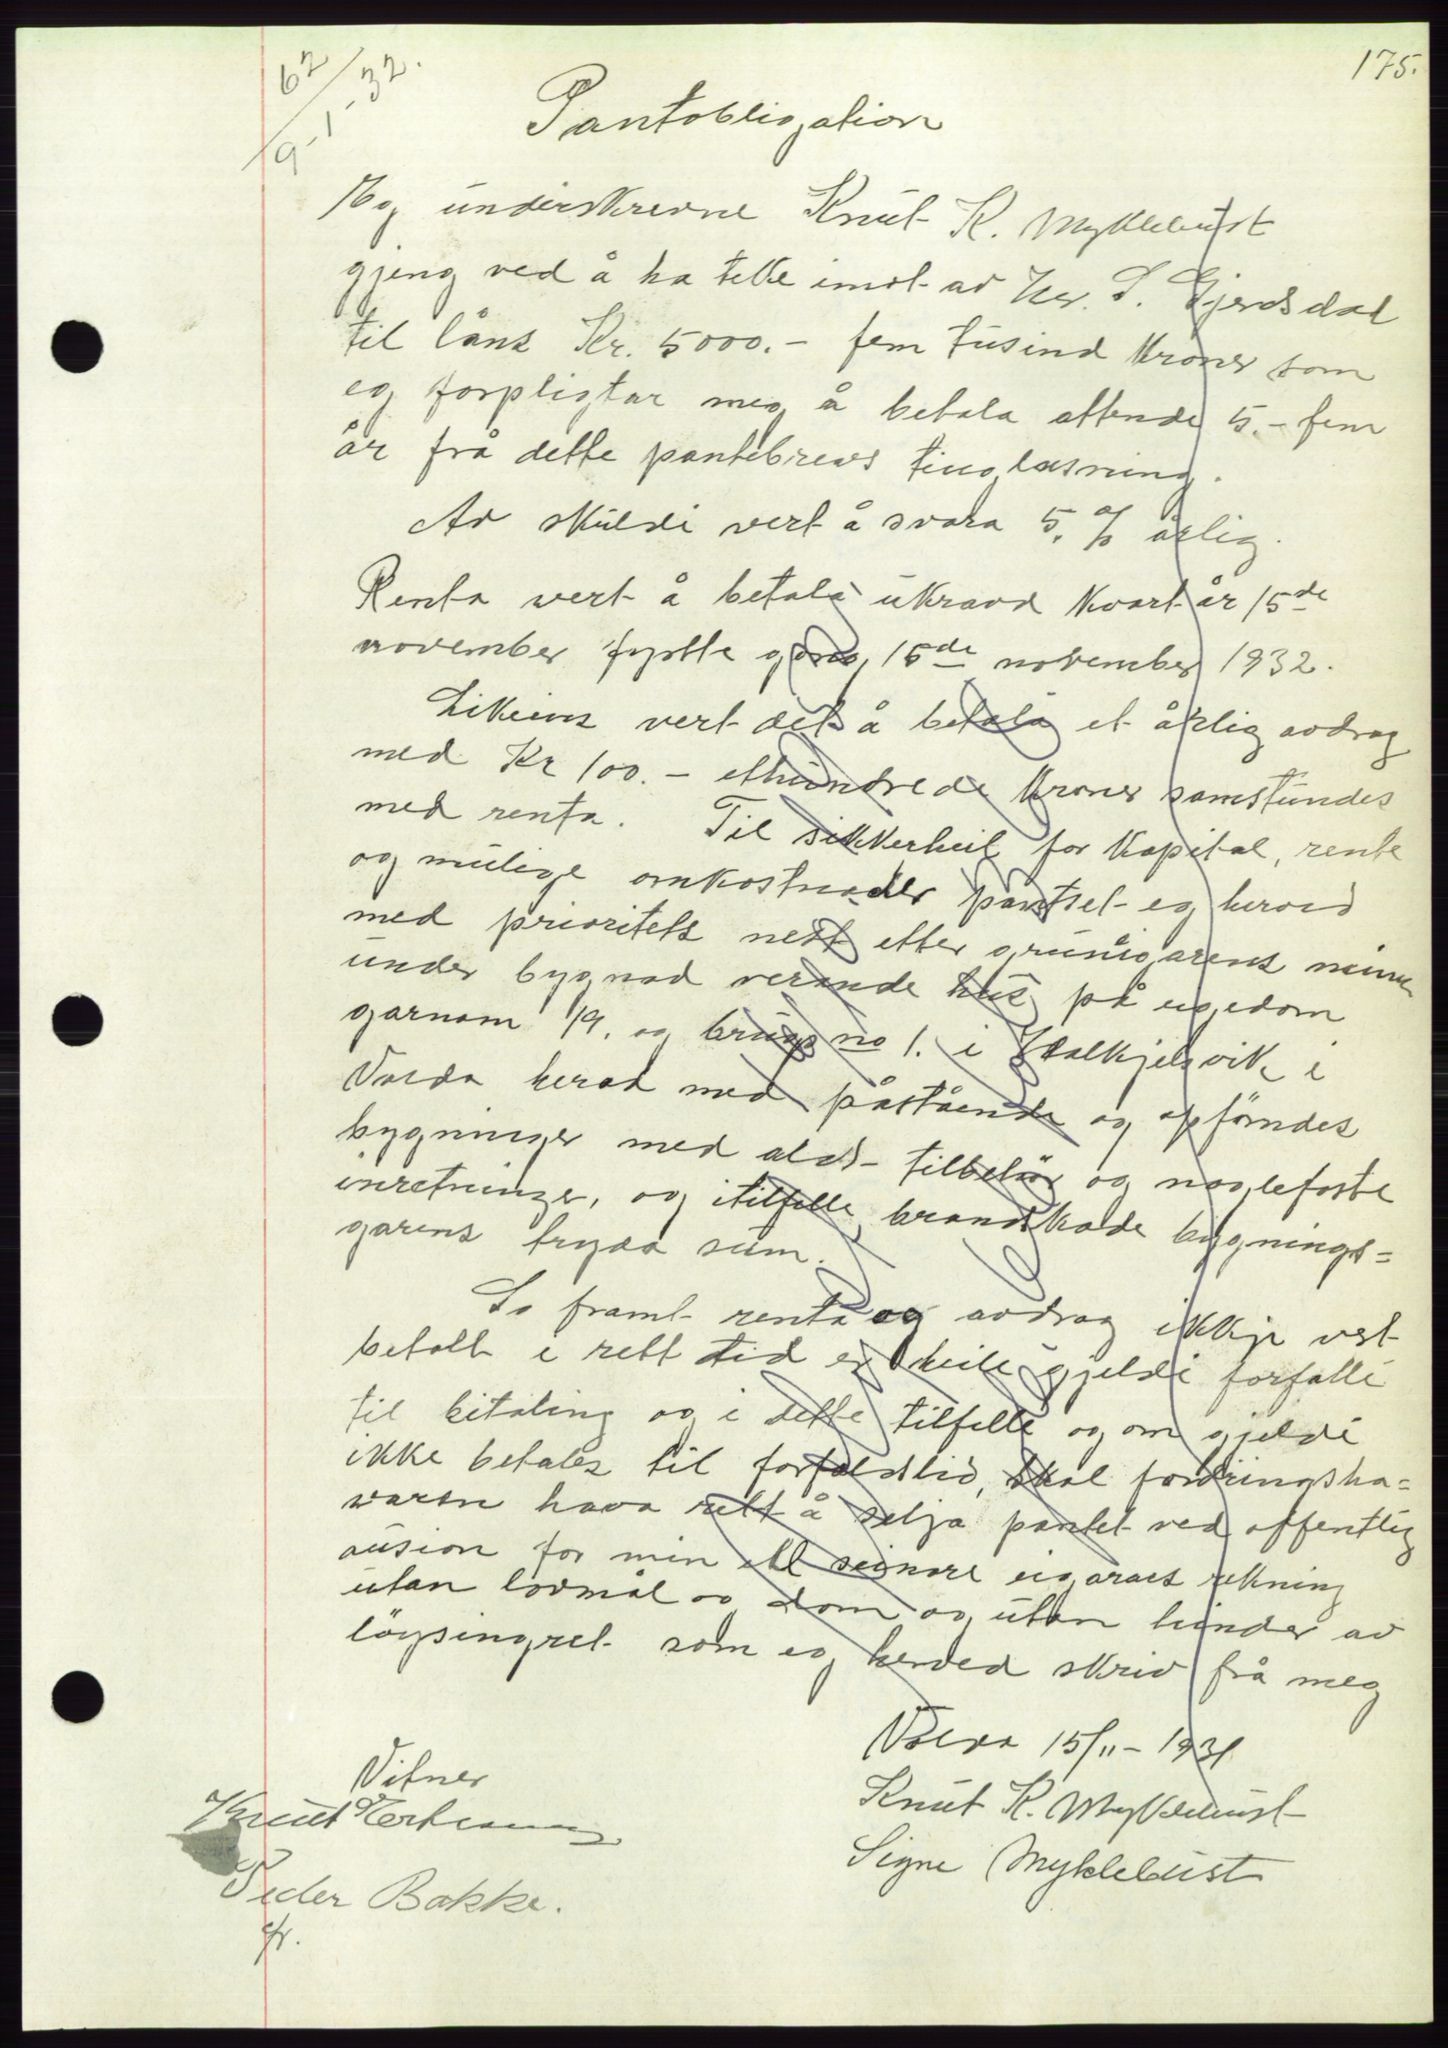 175.
62
9-1-32.
Pantobligation
Eg underskrevne Knut K. Myklebust
gjeng ved å ha teke imot av Hr. S. Gjerdsdal
til låns Kr. 5000.- fem tusind kroner som
eg forpligtar meg å betala attende 5.- fem
år frå dette pantebrevs tinglæsning.
Av skuldi vert å svara 5. % årlig.
Renta vert å betala ukravd kvart år 15de
november fyrste gong 15de november 1932.
Likeeins vert det å betala et årlig avdrag
med Kr 100.- ethundrede kroner samstundes
med renta. Til sikkerheit for kapital, rente
og mulige omkostnader pantset eg herved
med prioritets nest etter grunnigarens mine
under bygnad verande hus på eigedom
garnom 19. og brugs no 1. i Halkjelsvik i
Volda herad med påstående og opförndes
bygninger med alt tilbehör og naglefaste
inretninger, og i tilfelle brandskade bygnings=
garens trygda sum.
So framt renta og avdrag ikkje vert
betalt i rett tid er heile gjeldi forfalli
til bitaling og i dette tilfelle og om gjeldi
ikke betales til forfaldstid, skal fordringsha=
varen hava rett å selja pantet ved offentlig
ausion for min ell seinare eigarars rekning
utan lovmål og dom og utan hinder av
löysingret som eg herved skriv frå meg
Volda 15/11-1931
Knut K. Myklebust
Signe Myklebust
Vitner
Knut
Peder Bakke.